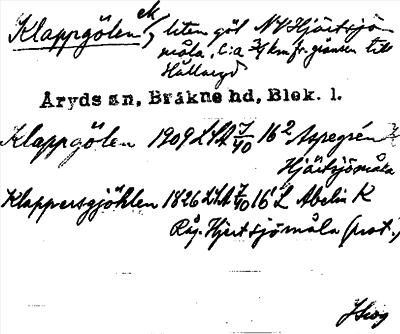 Klappgölen liten göl NV Hjärtsjö-
måla, c:a 3/4 km fr gränsen till
Hällaryd
Aryds sn, Bräkne hd, Blek. l.
Klappgölen 1909 LSA 7/40 16² Aspegrén
Hjärtsjömåla
Klappersgjöhlen 1826 LSA 7/40 16¹ L Abelin K
Råg. Hjertsjömåla (prot.)